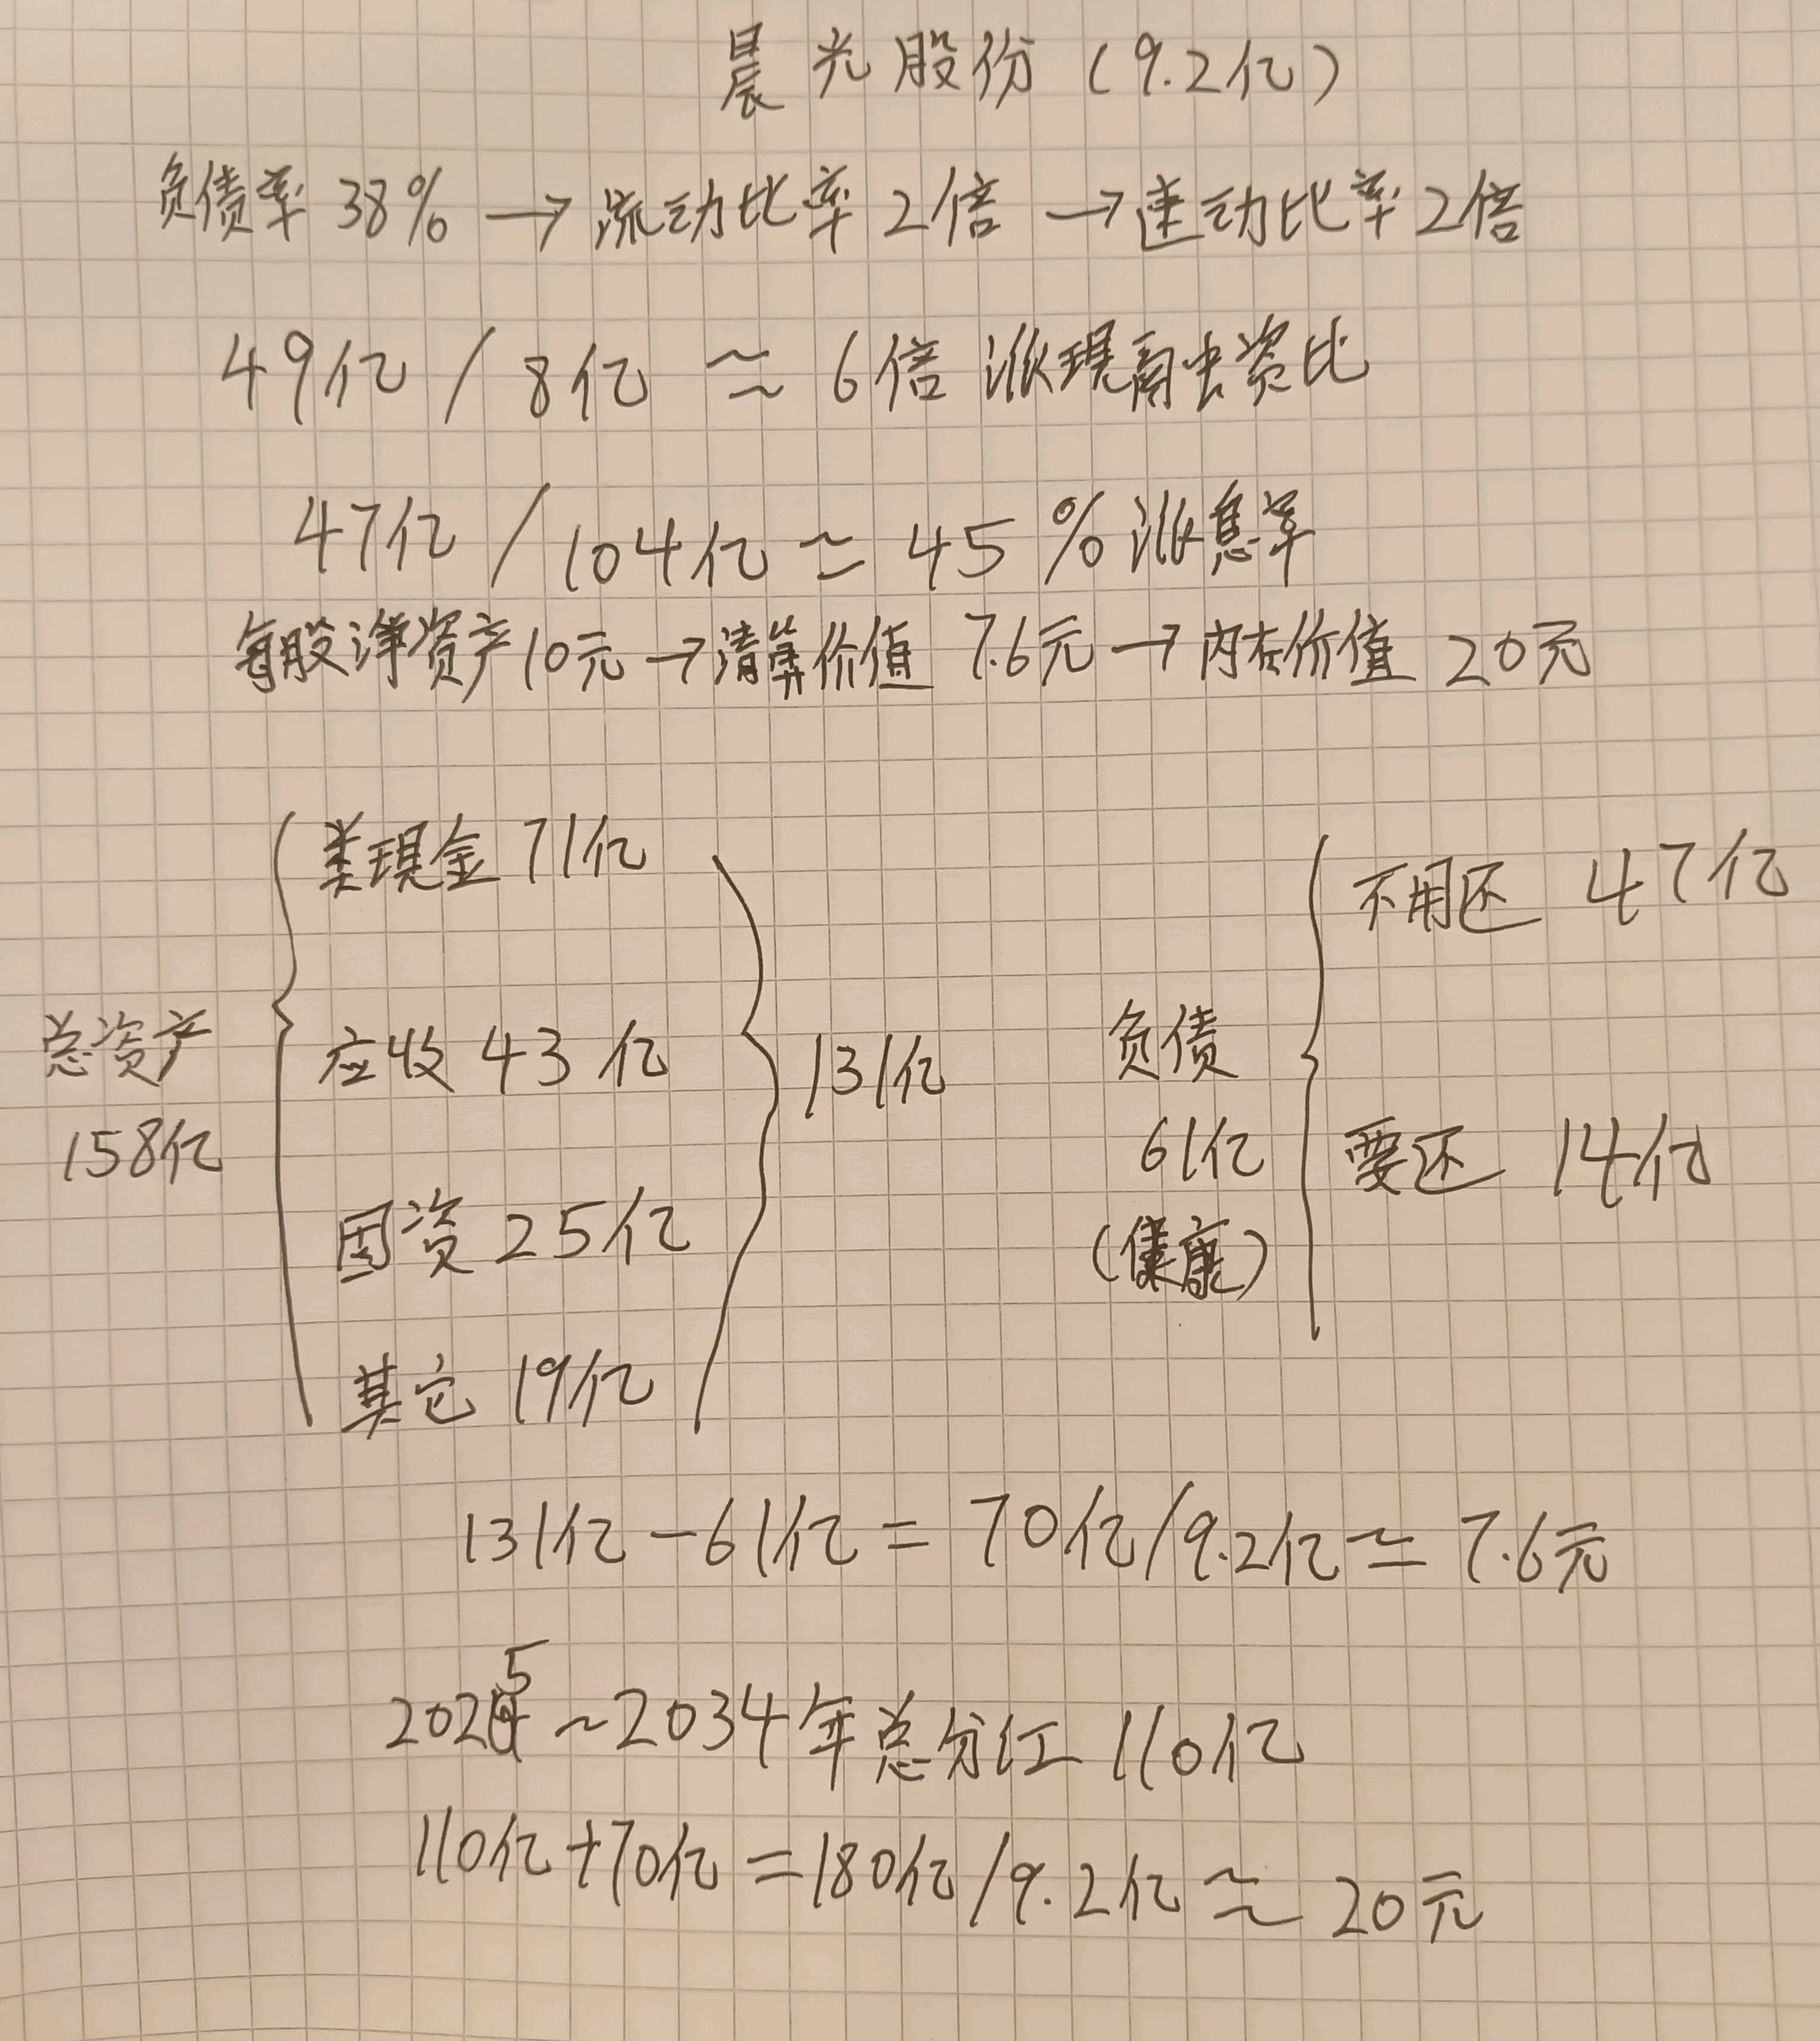 晨光股份（9.2亿）
负债率 38% → 流动比率 2倍 → 速动比率 2倍
49亿 / 8亿 ≈ 6倍 派现商出资比
47亿 / 104亿 ≃ 45% 派息率
每股净资产10元 → 清算价值 7.6元 → 内在价值 20元
总资产
158亿
类现金 71亿
应收 43亿
固资 25亿
其它 19亿
131亿
负债
61亿
（健康）
不用还 47亿
要还 14亿
131亿 - 61亿 = 70亿/9.2亿 ≃ 7.6元
2025 ~ 2034年总分红 110亿
110亿 + 70亿 = 180亿/9.2亿 ≈ 20元